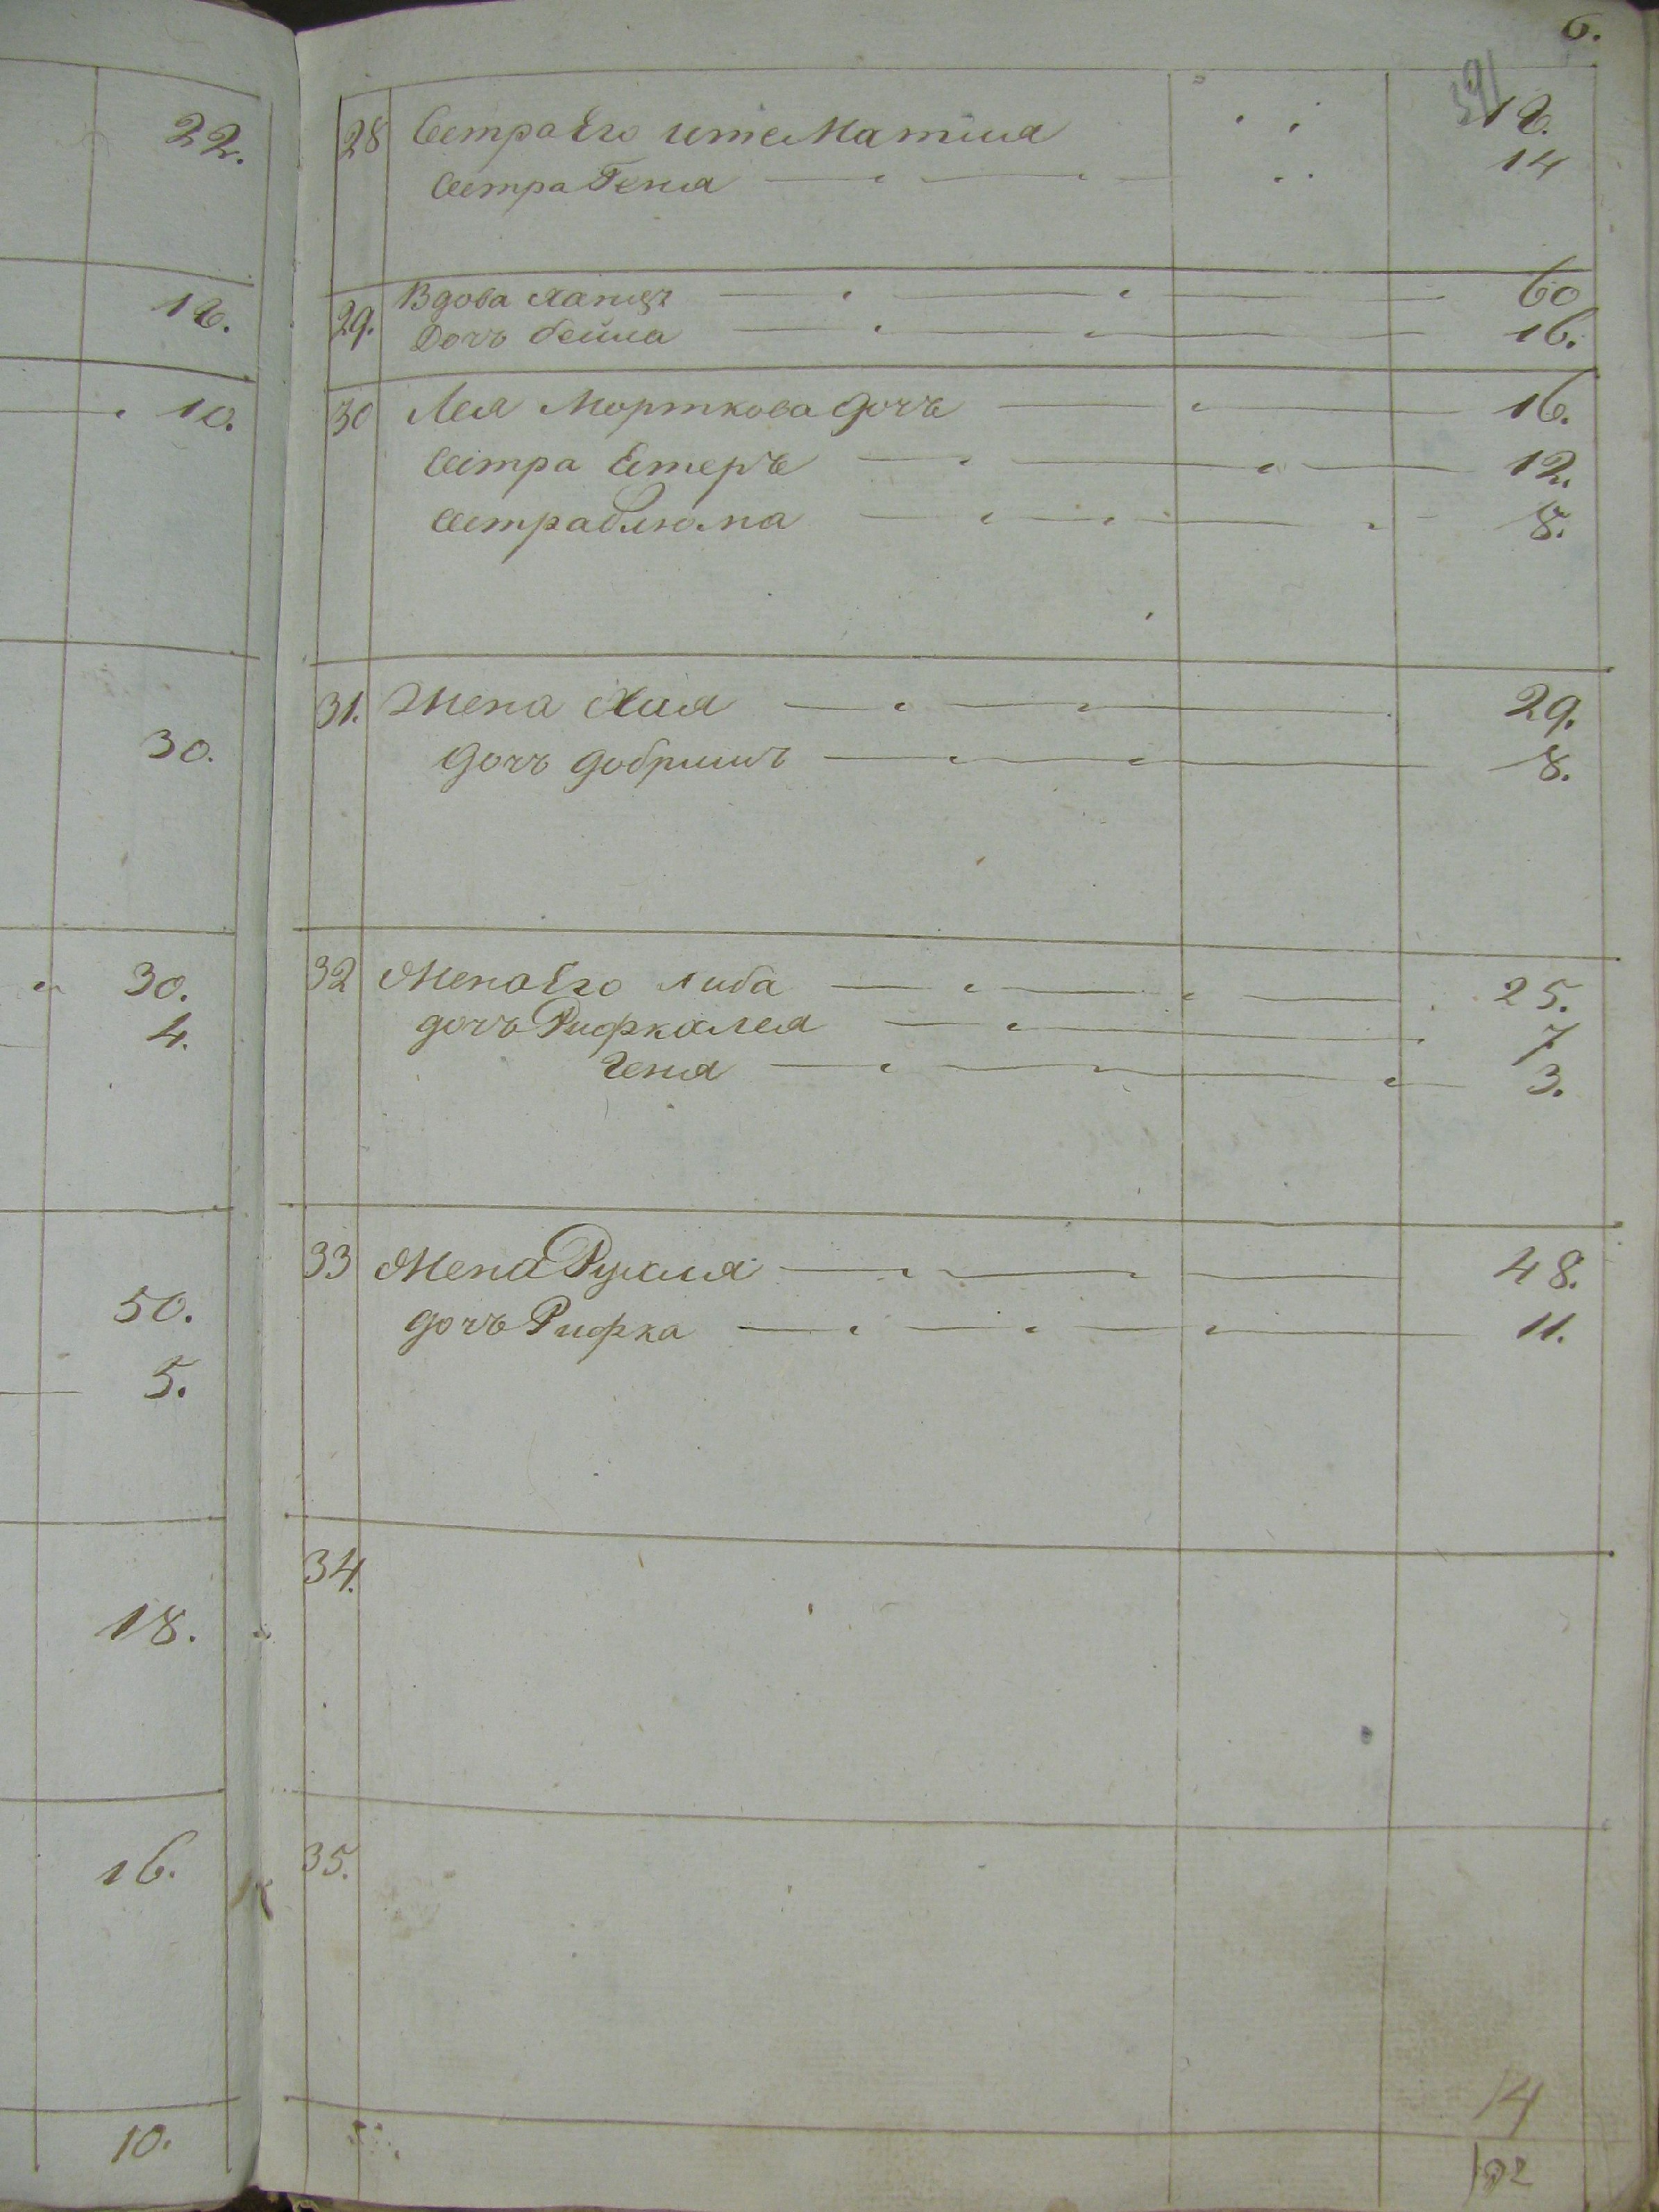 22.
18.
10.
30.
30.
4.
50.
5.
18.
16.
10.
6.
391
28 Сестра Его ите Матля 18.
Сестра Геня 14
29. Вдова 60
Дочь бейла 16.
30 Лея Морткова дочь 16.
Сестра Естеръ 12.
Сестра блюма 8.
31. Жена Хая 29.
дочь добришъ 8.
32 Жена Его либа 25.
дочь Рифка лея 7
геня 3.
33 Жена Рухля 48.
дочь Рифка 11.
34.
35.
14